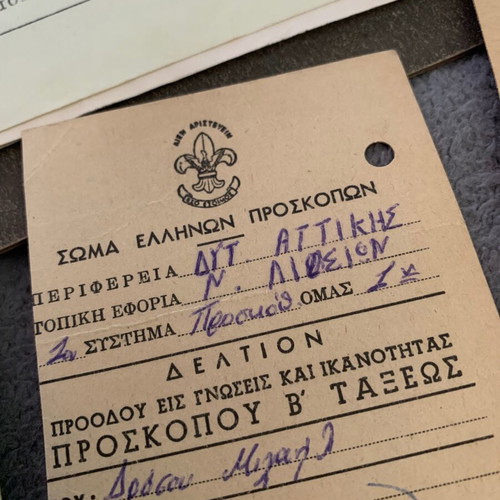 ΑΙΕΝ ΑΡΙΣΤΕΥΕΙΝ
ΕΣΟ ΕΤΟΙΜΟΣ
ΣΩΜΑ ΕΛΛΗΝΩΝ ΠΡΟΣΚΟΠΩΝ
ΠΕΡΙΦΕΡΕΙΑ ΔΥΤ. ΑΤΤΙΚΗΣ
ΤΟΠΙΚΗ ΕΦΟΡΙΑ Ν. ΛΙΟΣΙΩΝ
ΣΥΣΤΗΜΑ Προσκόπ ΟΜΑΣ 1η
ΔΕΛΤΙΟΝ
ΠΡΟΟΔΟΥ ΕΙΣ ΓΝΩΣΕΙΣ ΚΑΙ ΙΚΑΝΟΤΗΤΑΣ
ΠΡΟΣΚΟΠΟΥ Β' ΤΑΞΕΩΣ
Δράσου Μιχαήλ